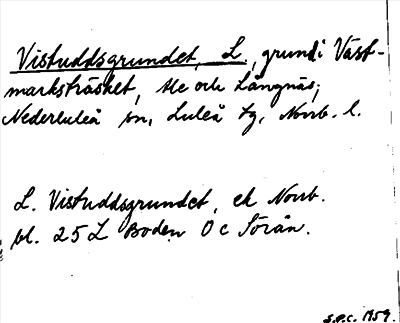 Vistuddsgrundet, L., grund i Väst-
marksträsket, Ale och Långnäs;
Nederluleå sn, Luleå tg, Norrb. l.
L. Vistuddsgrundet, ek Norrb.
bl. 25 L Boden O c Sörån.
S.P.C. 1959.